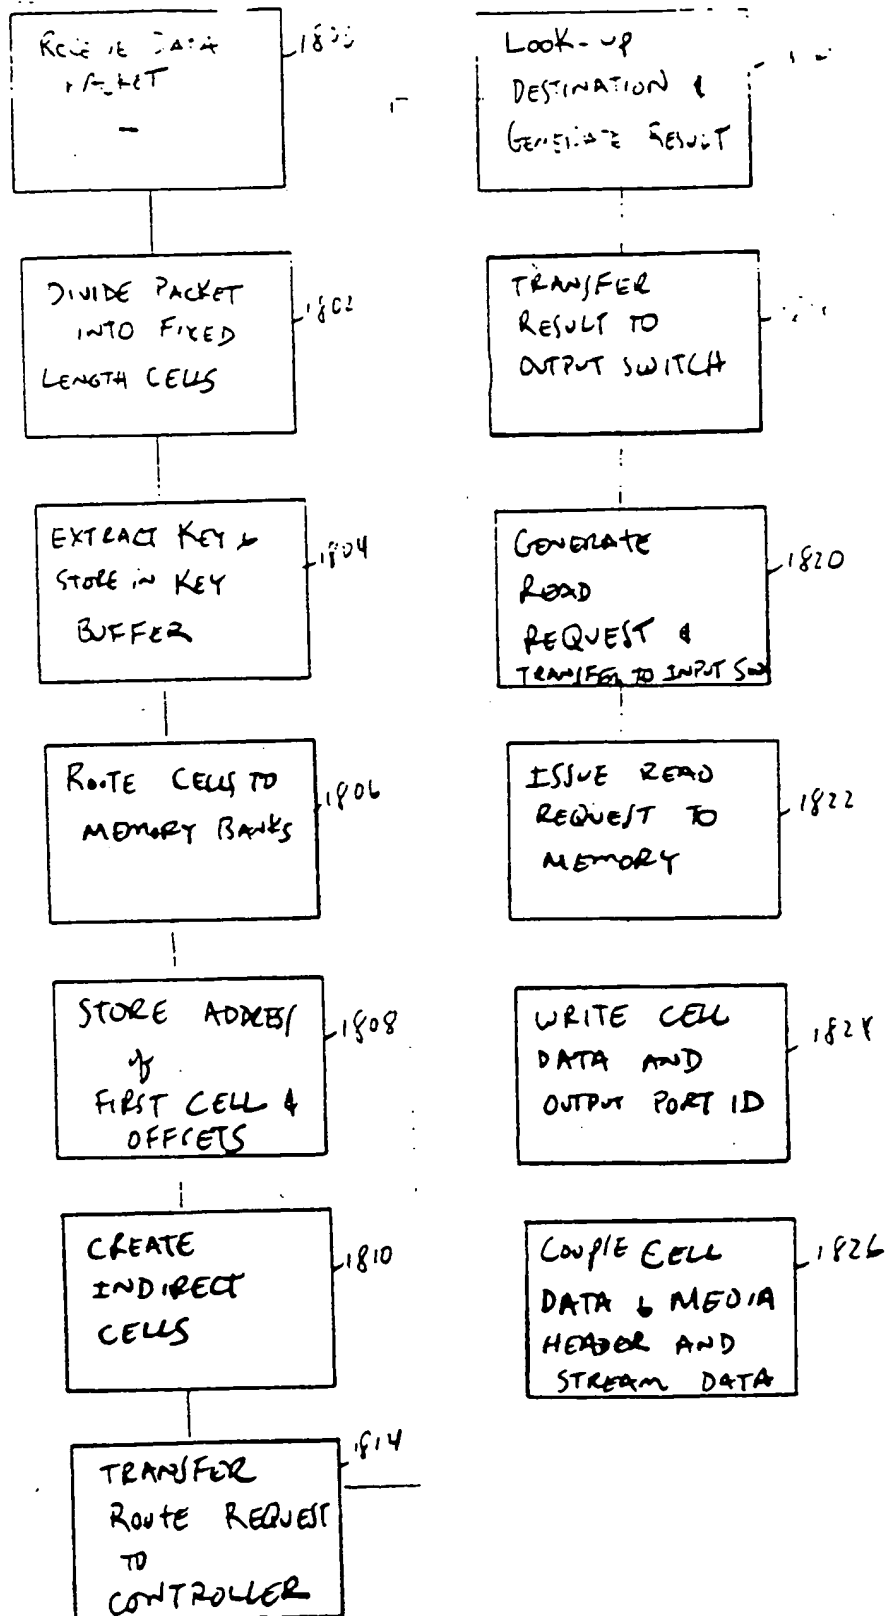 DATA
1800
DIVIDE PACKET
INTO FIXED
LENGTH CELLS
1802
EXTRACT KEY &
STORE IN KEY
BUFFER
1804
ROUTE CELLS TO
MEMORY BANKS
1806
STORE ADDRESS
of
FIRST CELL &
OFFSETS
1808
CREATE
INDIRECT
CELLS
1810
TRANSFER
ROUTE REQUEST
TO
CONTROLLER
1814
LOOK-UP
DESTINATION &
GENERATE RESULT
TRANSFER
RESULT TO
OUTPUT SWITCH
GENERATE
READ
REQUEST &
TRANSFER TO INPUT SW
1820
ISSUE READ
REQUEST TO
MEMORY
1822
WRITE CELL
DATA AND
OUTPUT PORT ID
1824
COUPLE CELL
DATA & MEDIA
HEADER AND
STREAM DATA
1826